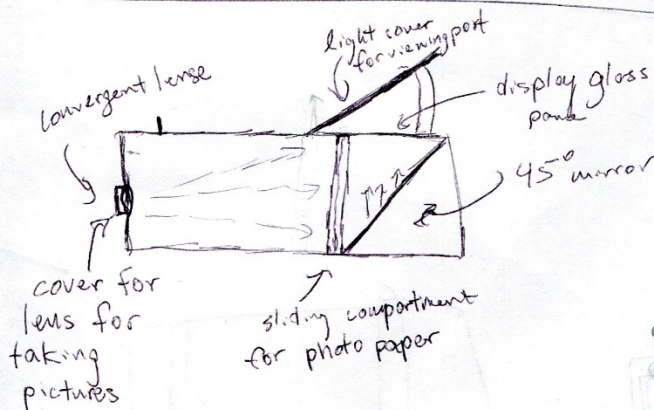 light cover
for viewing port
convergent lense
display glass
pane
45° mirror
cover for
lens for
taking
pictures
sliding compartment
for photo paper